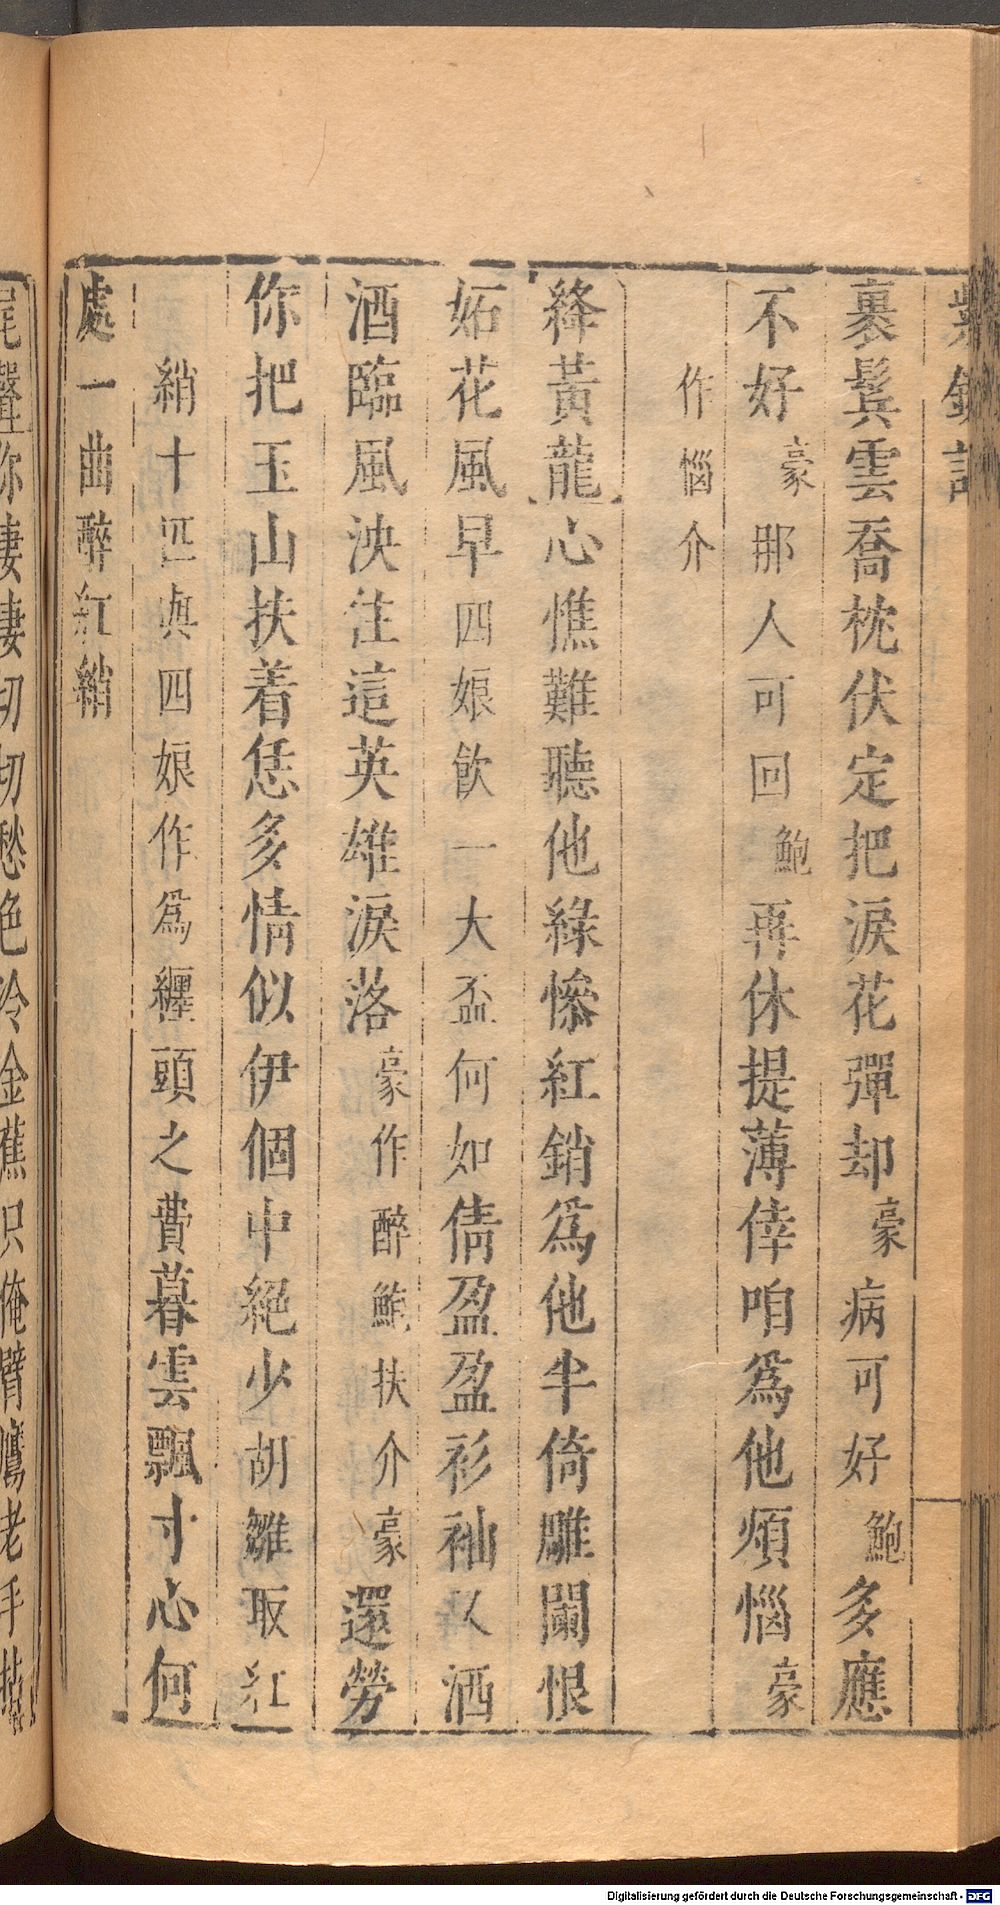 紫釵記
裹鬂雲喬枕伏定把淚花彈却豪病可好鮑多應
不好豪那人可回鮑再休提薄倖咱為他煩惱豪
作惱介
絳黃龍心憔難聽他綠慘紅銷為他半倚雕闌恨
妬花風早四娘飲一大盃何如倩盈盈衫袖乂酒
酒臨風泱住這英雄淚落豪作醉鮑扶介豪還勞
你把玉山扶着恁多情似伊個中絕少胡雛取紅
綃十匹與四娘作爲纒頭之費暮雲飄寸心何
處一曲醉紅綃
尾聲你悽悽切切愁色冷金蕉只俺臂鷹老手
Digitalisierung gefördert durch die Deutsche Forschungsgemeinschaft - DFG